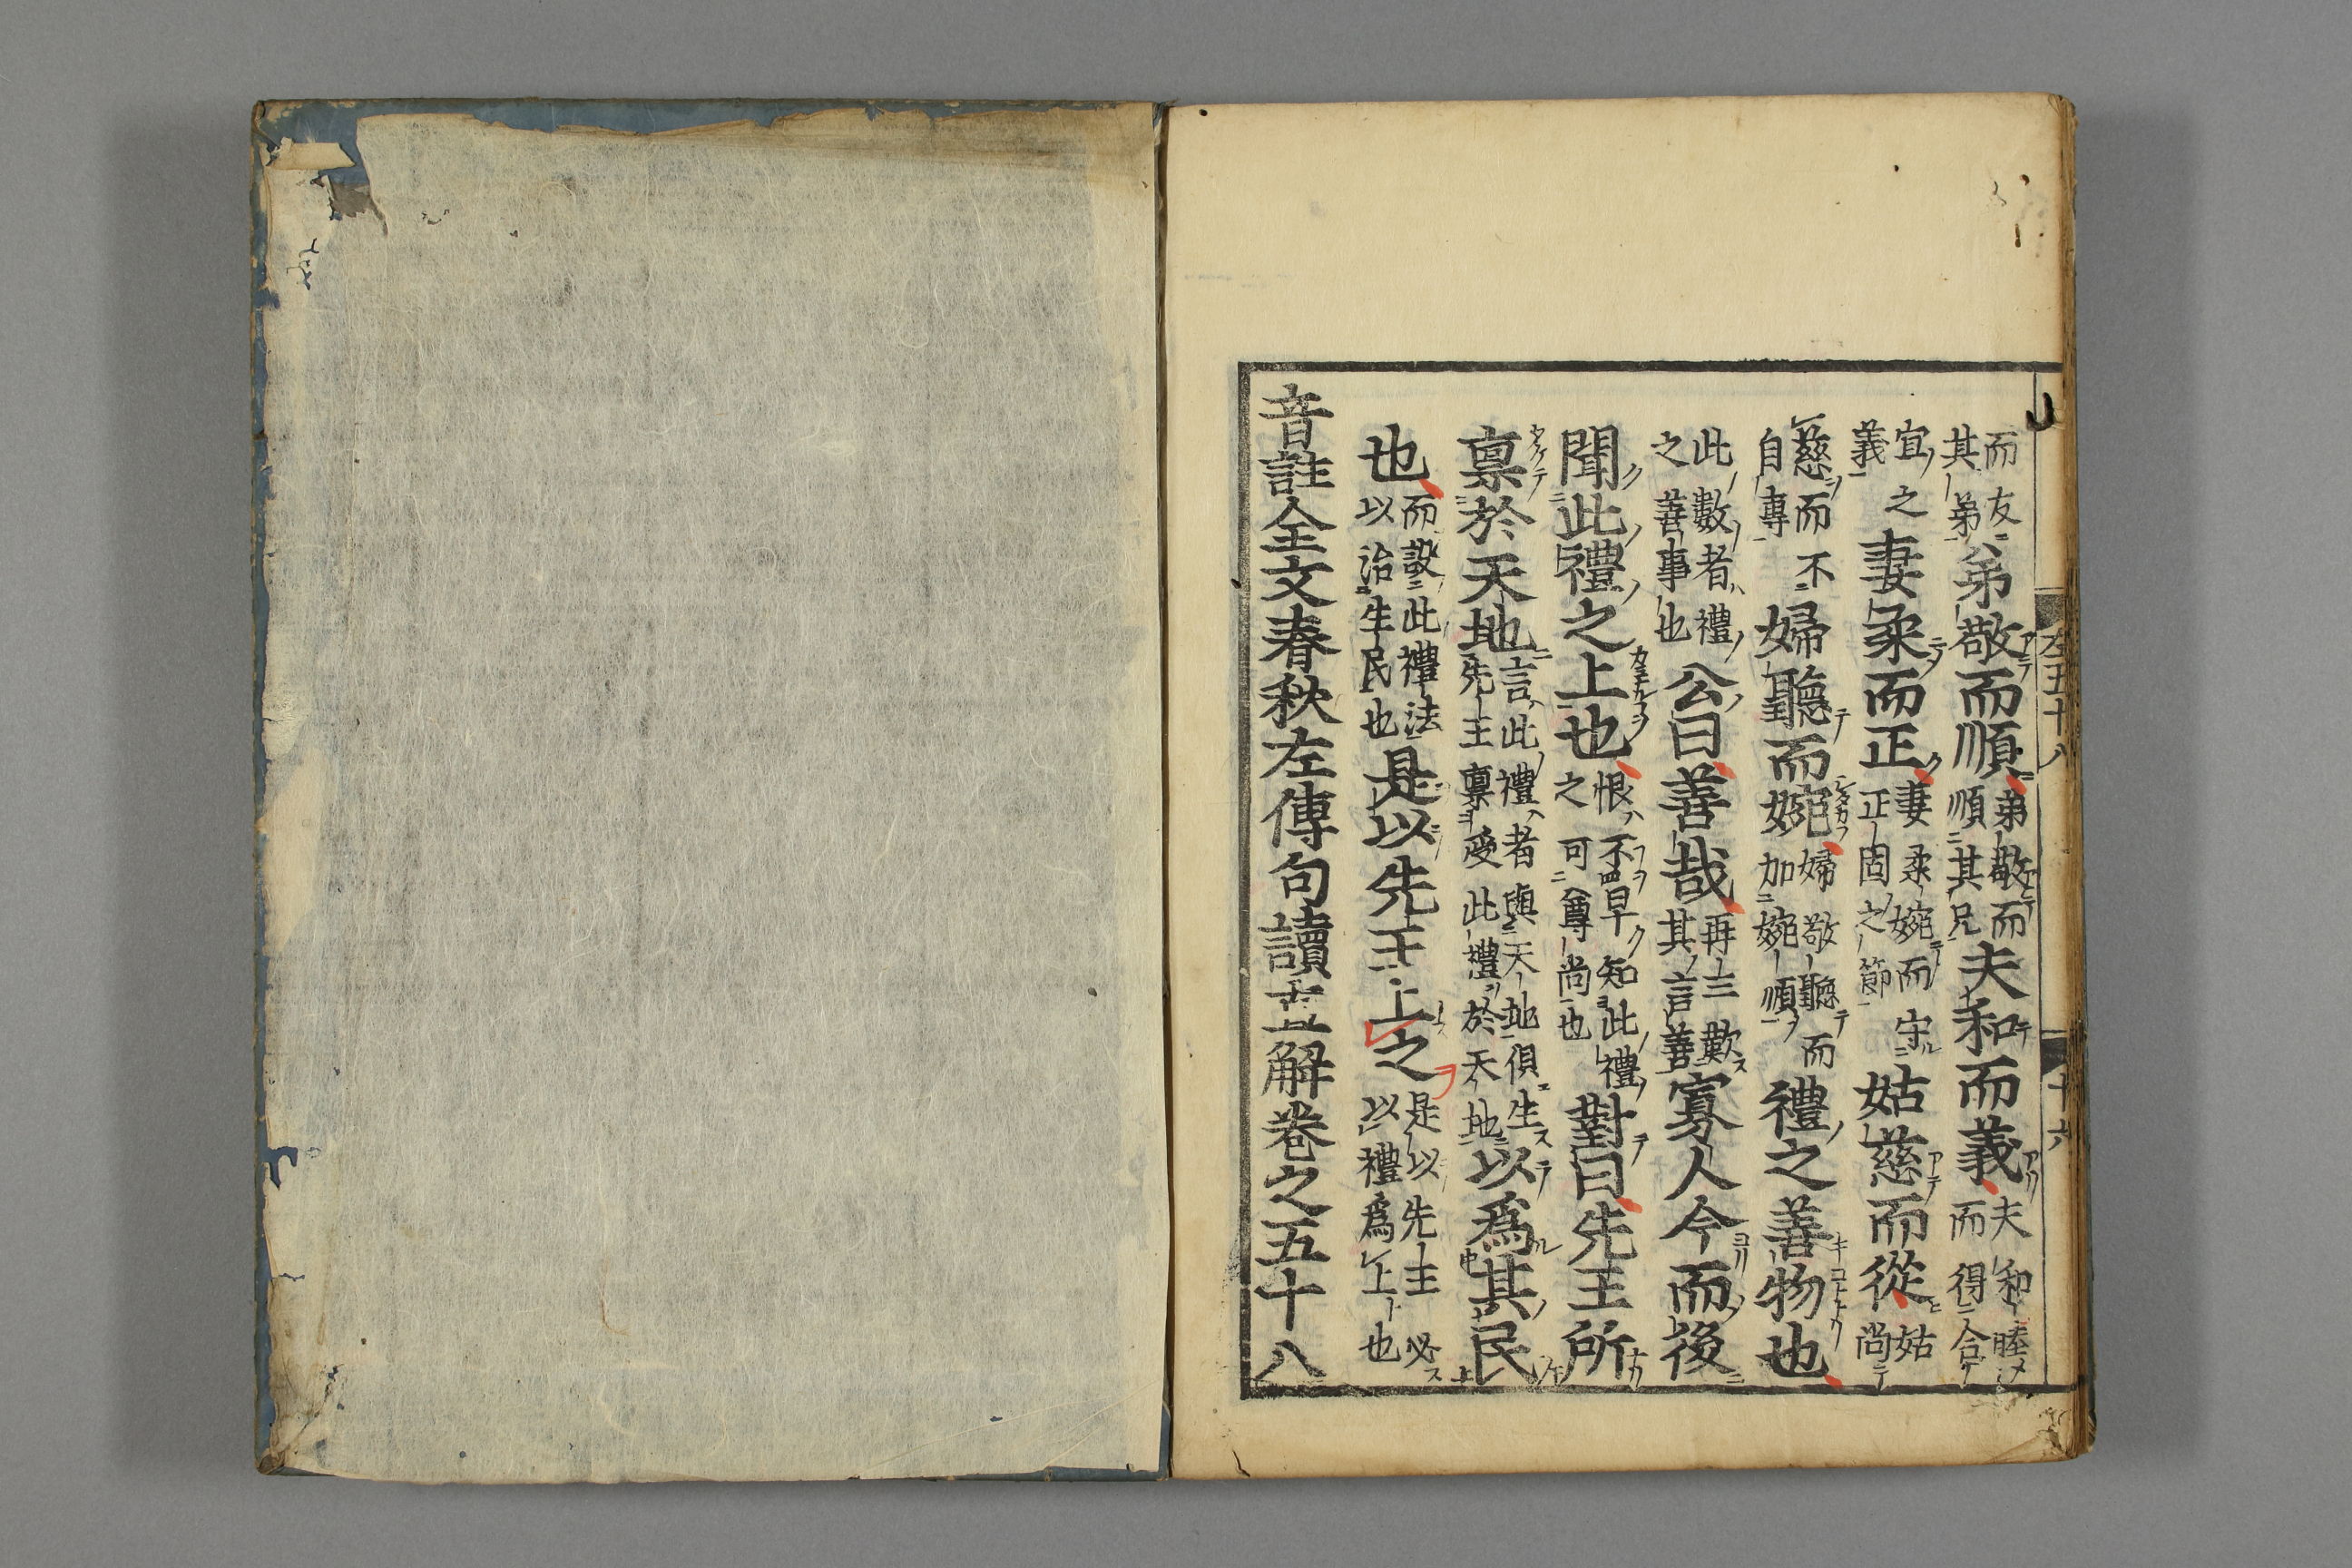 而友其弟弟敬而順弟敬而順其兄夫和而義夫和睦而得合
宜之義妻柔而正妻柔婉而守正固之節姑慈而從姑尚
慈而不自專婦聽而婉婦敬聽而加婉順禮之善物也
此數者禮之善事也公曰善哉再三歎其言善寡人今而後
聞此禮之上也恨不早知此禮之可尊尚也對曰先王所
禀於天地言此禮者與天地俱生先王禀受此禮於天地以爲其民
也而設此禮法以治生民也是以先王上之是以先王必以禮爲上也
音註全文春秋左傳句讀直解卷之五十八
左五十八
十六